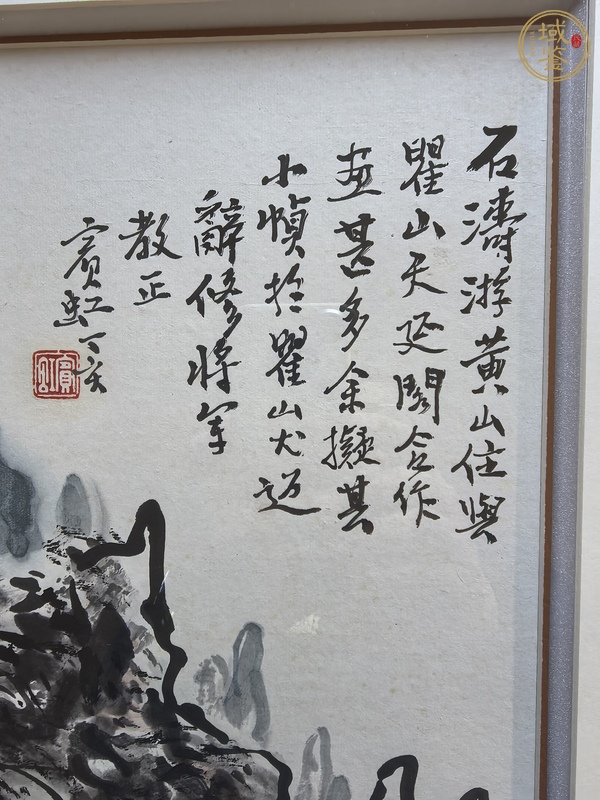 石濤游黃山住與
瞿山天延閣合作
畫甚多余擬其
小幀於瞿山尤近
辭修將軍
教正
賓虹丁亥
賓虹
域鉴